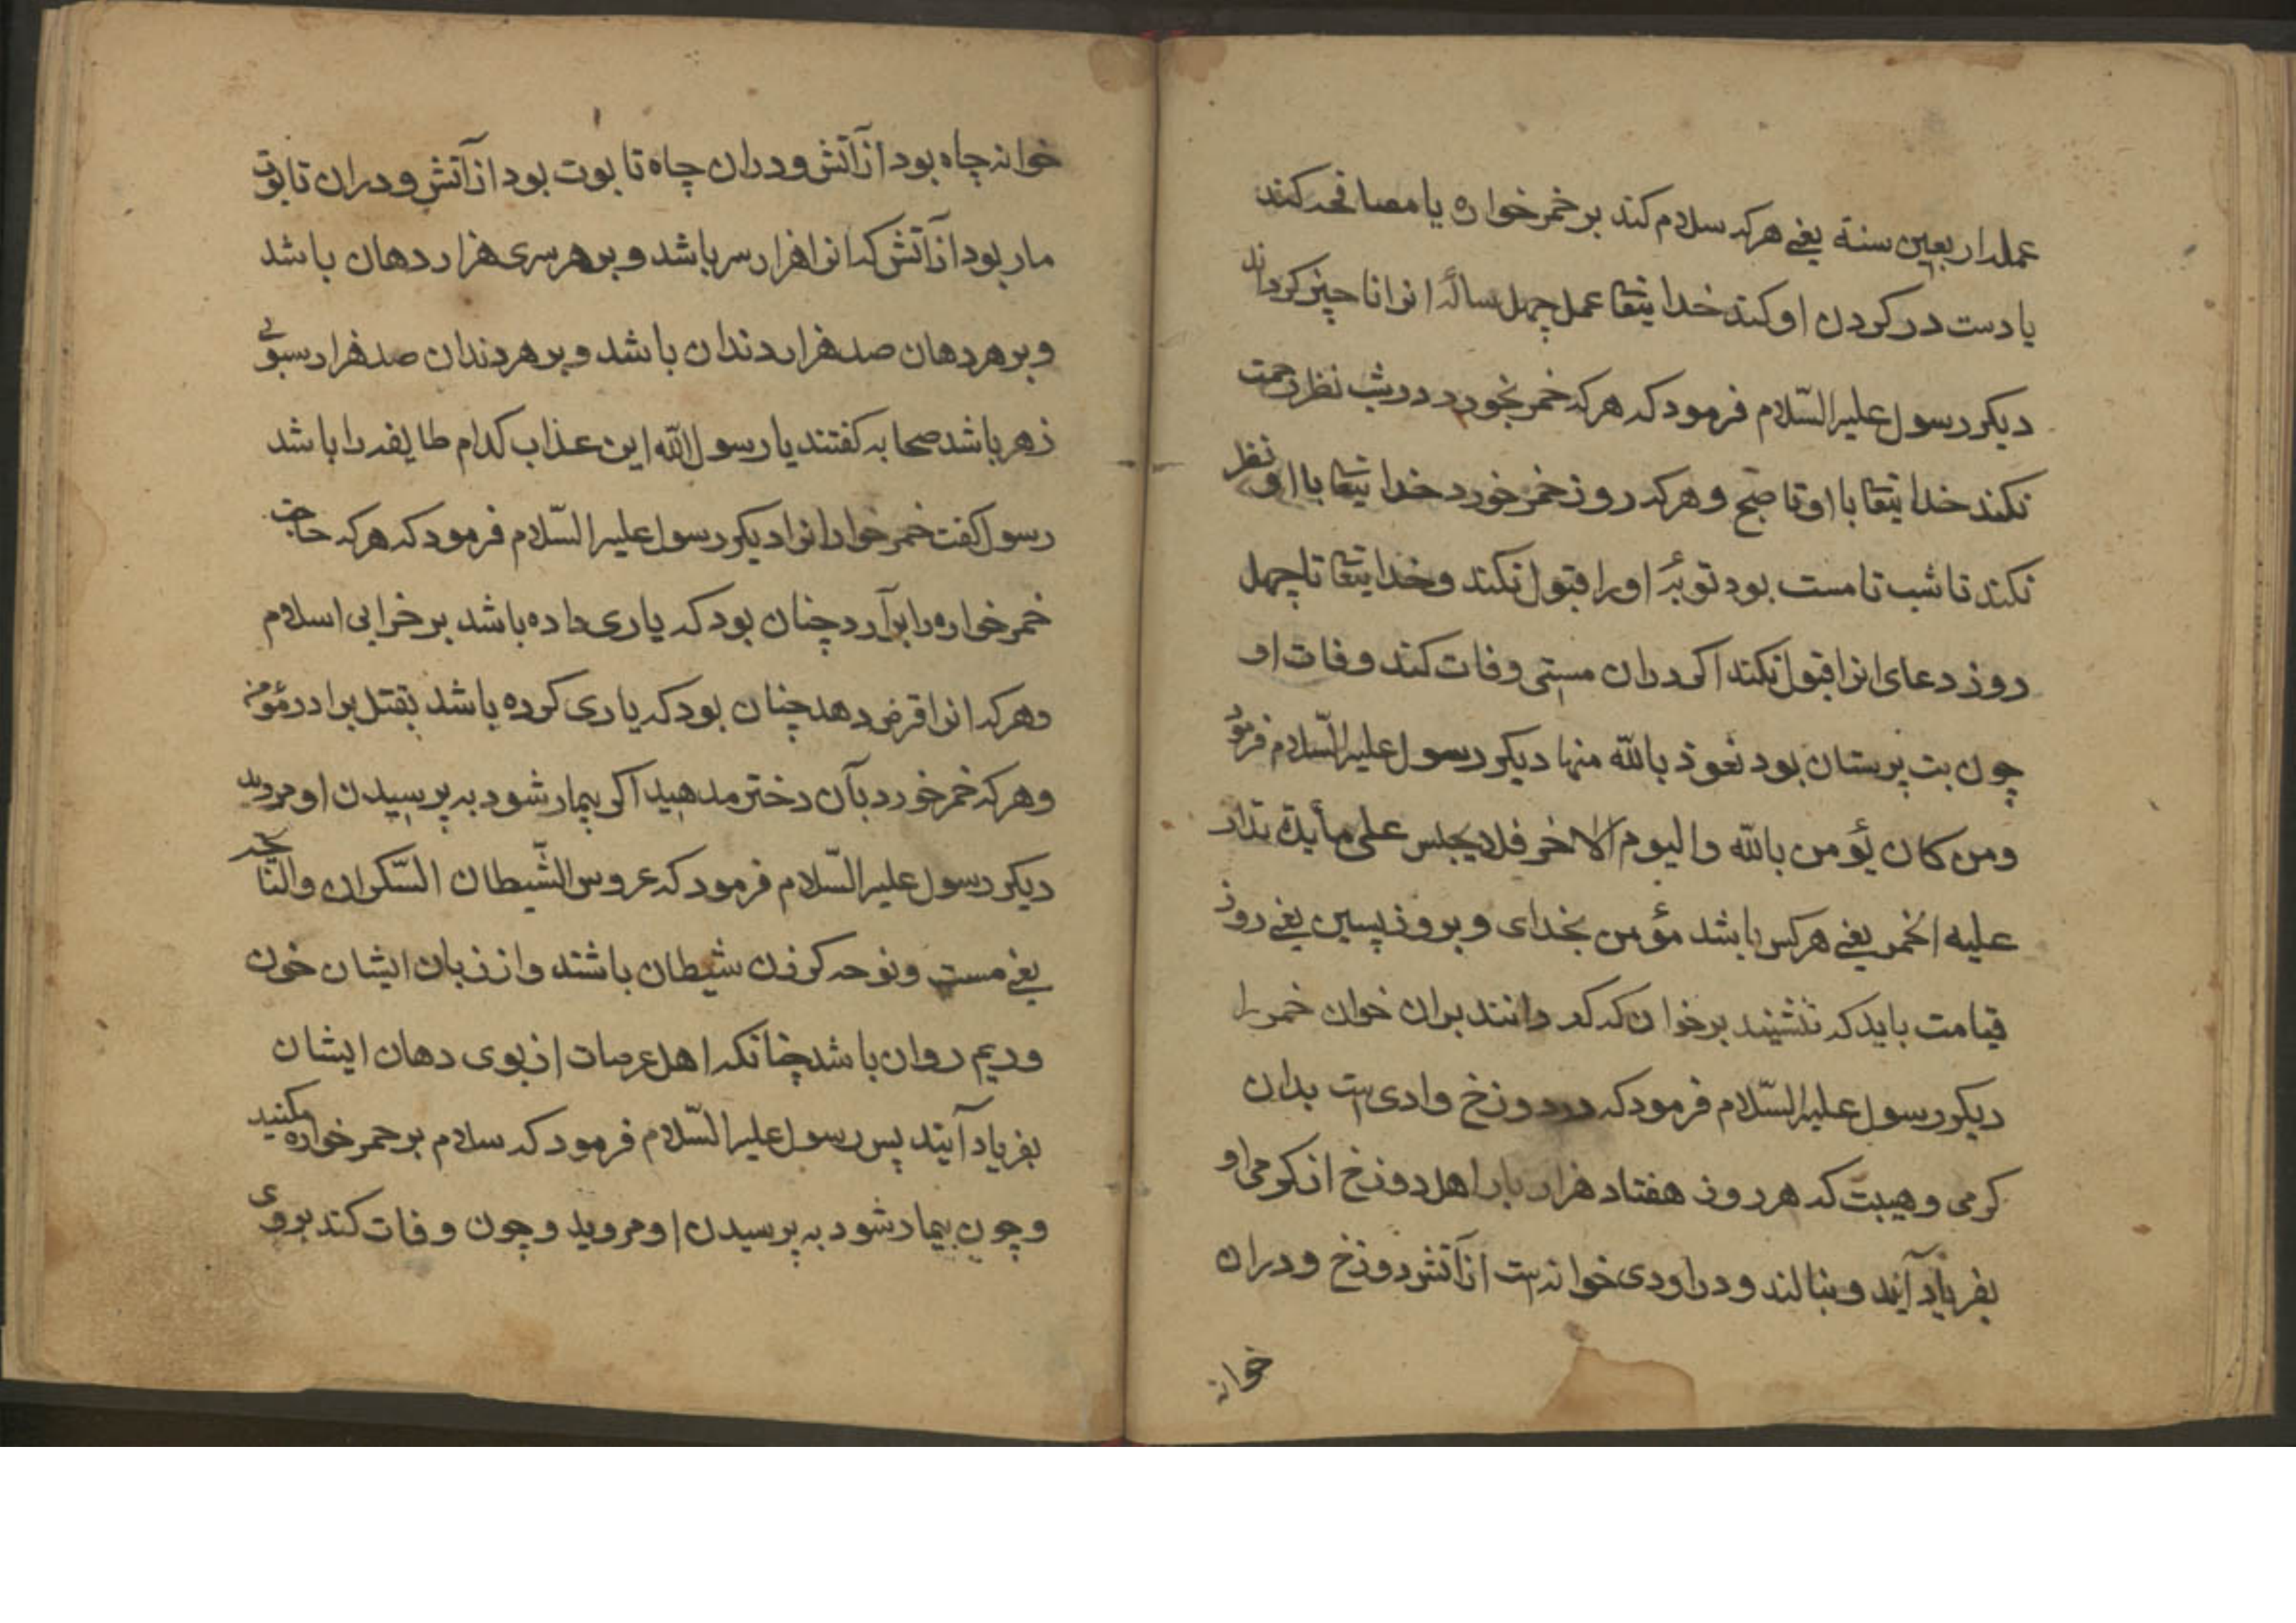 عمله اربعین سنة یعنے هرکه سلام کند بر خمر خواره یا مصافحه کند
یا دست در کردن او کند خدا یتعا عمل چهل سالۀ انرا ناچیز کرداند
دیکر رسول علیه السّلام فرمود که هرکه خمر بخورد در شب نظر رحمت
نکند خدا یتعا با او تا صبح و هرکه روز خمر خورد خدا یتعا با او نظر
نکند تا شب تا مست بود توبۀ او را قبول نکند و خدا یتعا تا چهل
روز دعای انرا قبول نکند اکر دران مستی وفات کند وفات او
چون بت پرستان بود نعوذ بالله منها دیکر رسول علیه السّلام فرمود
ومن کان یؤمن بالله والیوم الاخر فلا یجلس علی مأیدة تدار
علیه الخمر یعنے هرکس باشد مؤمن بخدای و بروز پسین یعنے روز
قیامت باید که ننشیند بر خوان که کردانند بران خوان خمر را
دیکر رسول علیه السّلام فرمود که در دوزخ وادی است بدان
کرمی و هیبت که هر روز هفتاد هزار بار اهل دوزخ از کرمی او
بفریاد آیند و بنالند و دراودی خوانه است از آتش دوزخ و دران
خوانه
خوانه چاه بود از آتش و دران چاه تابوت بود از آتش و دران تابوت
مار بود از آتش که انرا هزار سر باشد و بر هر سری هزار دهان باشد
و بر هر دهان صد هزار دندان باشد و بر هر دندان صد هزار سبوی
زهر باشد صحابه کفتند یا رسول الله این عذاب کدام طایفه را باشد
رسول کفت خمر خوارانرا دیکر رسول علیه السّلام فرمود که هرکه حاجت
خمر خواره را برآرد چنان بود که یاری داده باشد بر خرابی اسلام
و هرکه انرا قرض دهد چنان بود که یاری کرده باشد بقتل برادر مؤمن
و هرکه خمر خورد بآن دختر مدهید اکر بیمار شود به پرسیدن او مروید
دیکر رسول علیه السّلام فرمود که عروس الشّیطان السّکران والنّایحه
یعنے مست و نوحه کر زن شیطان باشند و از زبان ایشان خون
و ریم روان باشد چنانکه اهل عرصات از بوی دهان ایشان
بفریاد آیند پس رسول علیه السّلام فرمود که سلام بر خمر خواره مکنید
و چون بیمار شود به پرسیدن او مروید و چون وفات کند بروی